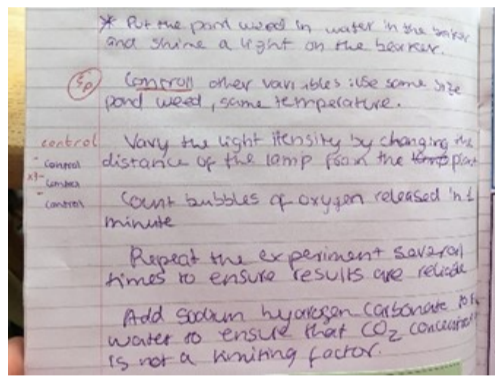 * Put the pond weed in water in the
and shine a light on the beaker.
Sp Controll other variables : Use same size
pond weed, same temperature.
control Vary the light itensity by changing the
- control distance of the lamp from the plant
x3- control
- control Count bubbles of oxygen released in 1
minute
Repeat the experiment several
times to ensure results are reliable
Add sodium hydrogen carbonate to
water to ensure that CO2
is not a limiting factor.